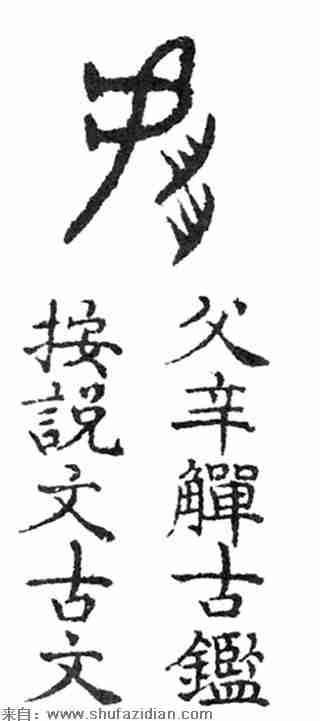 父辛觶古鑑
按説文古文
来自：www.shufazidian.com